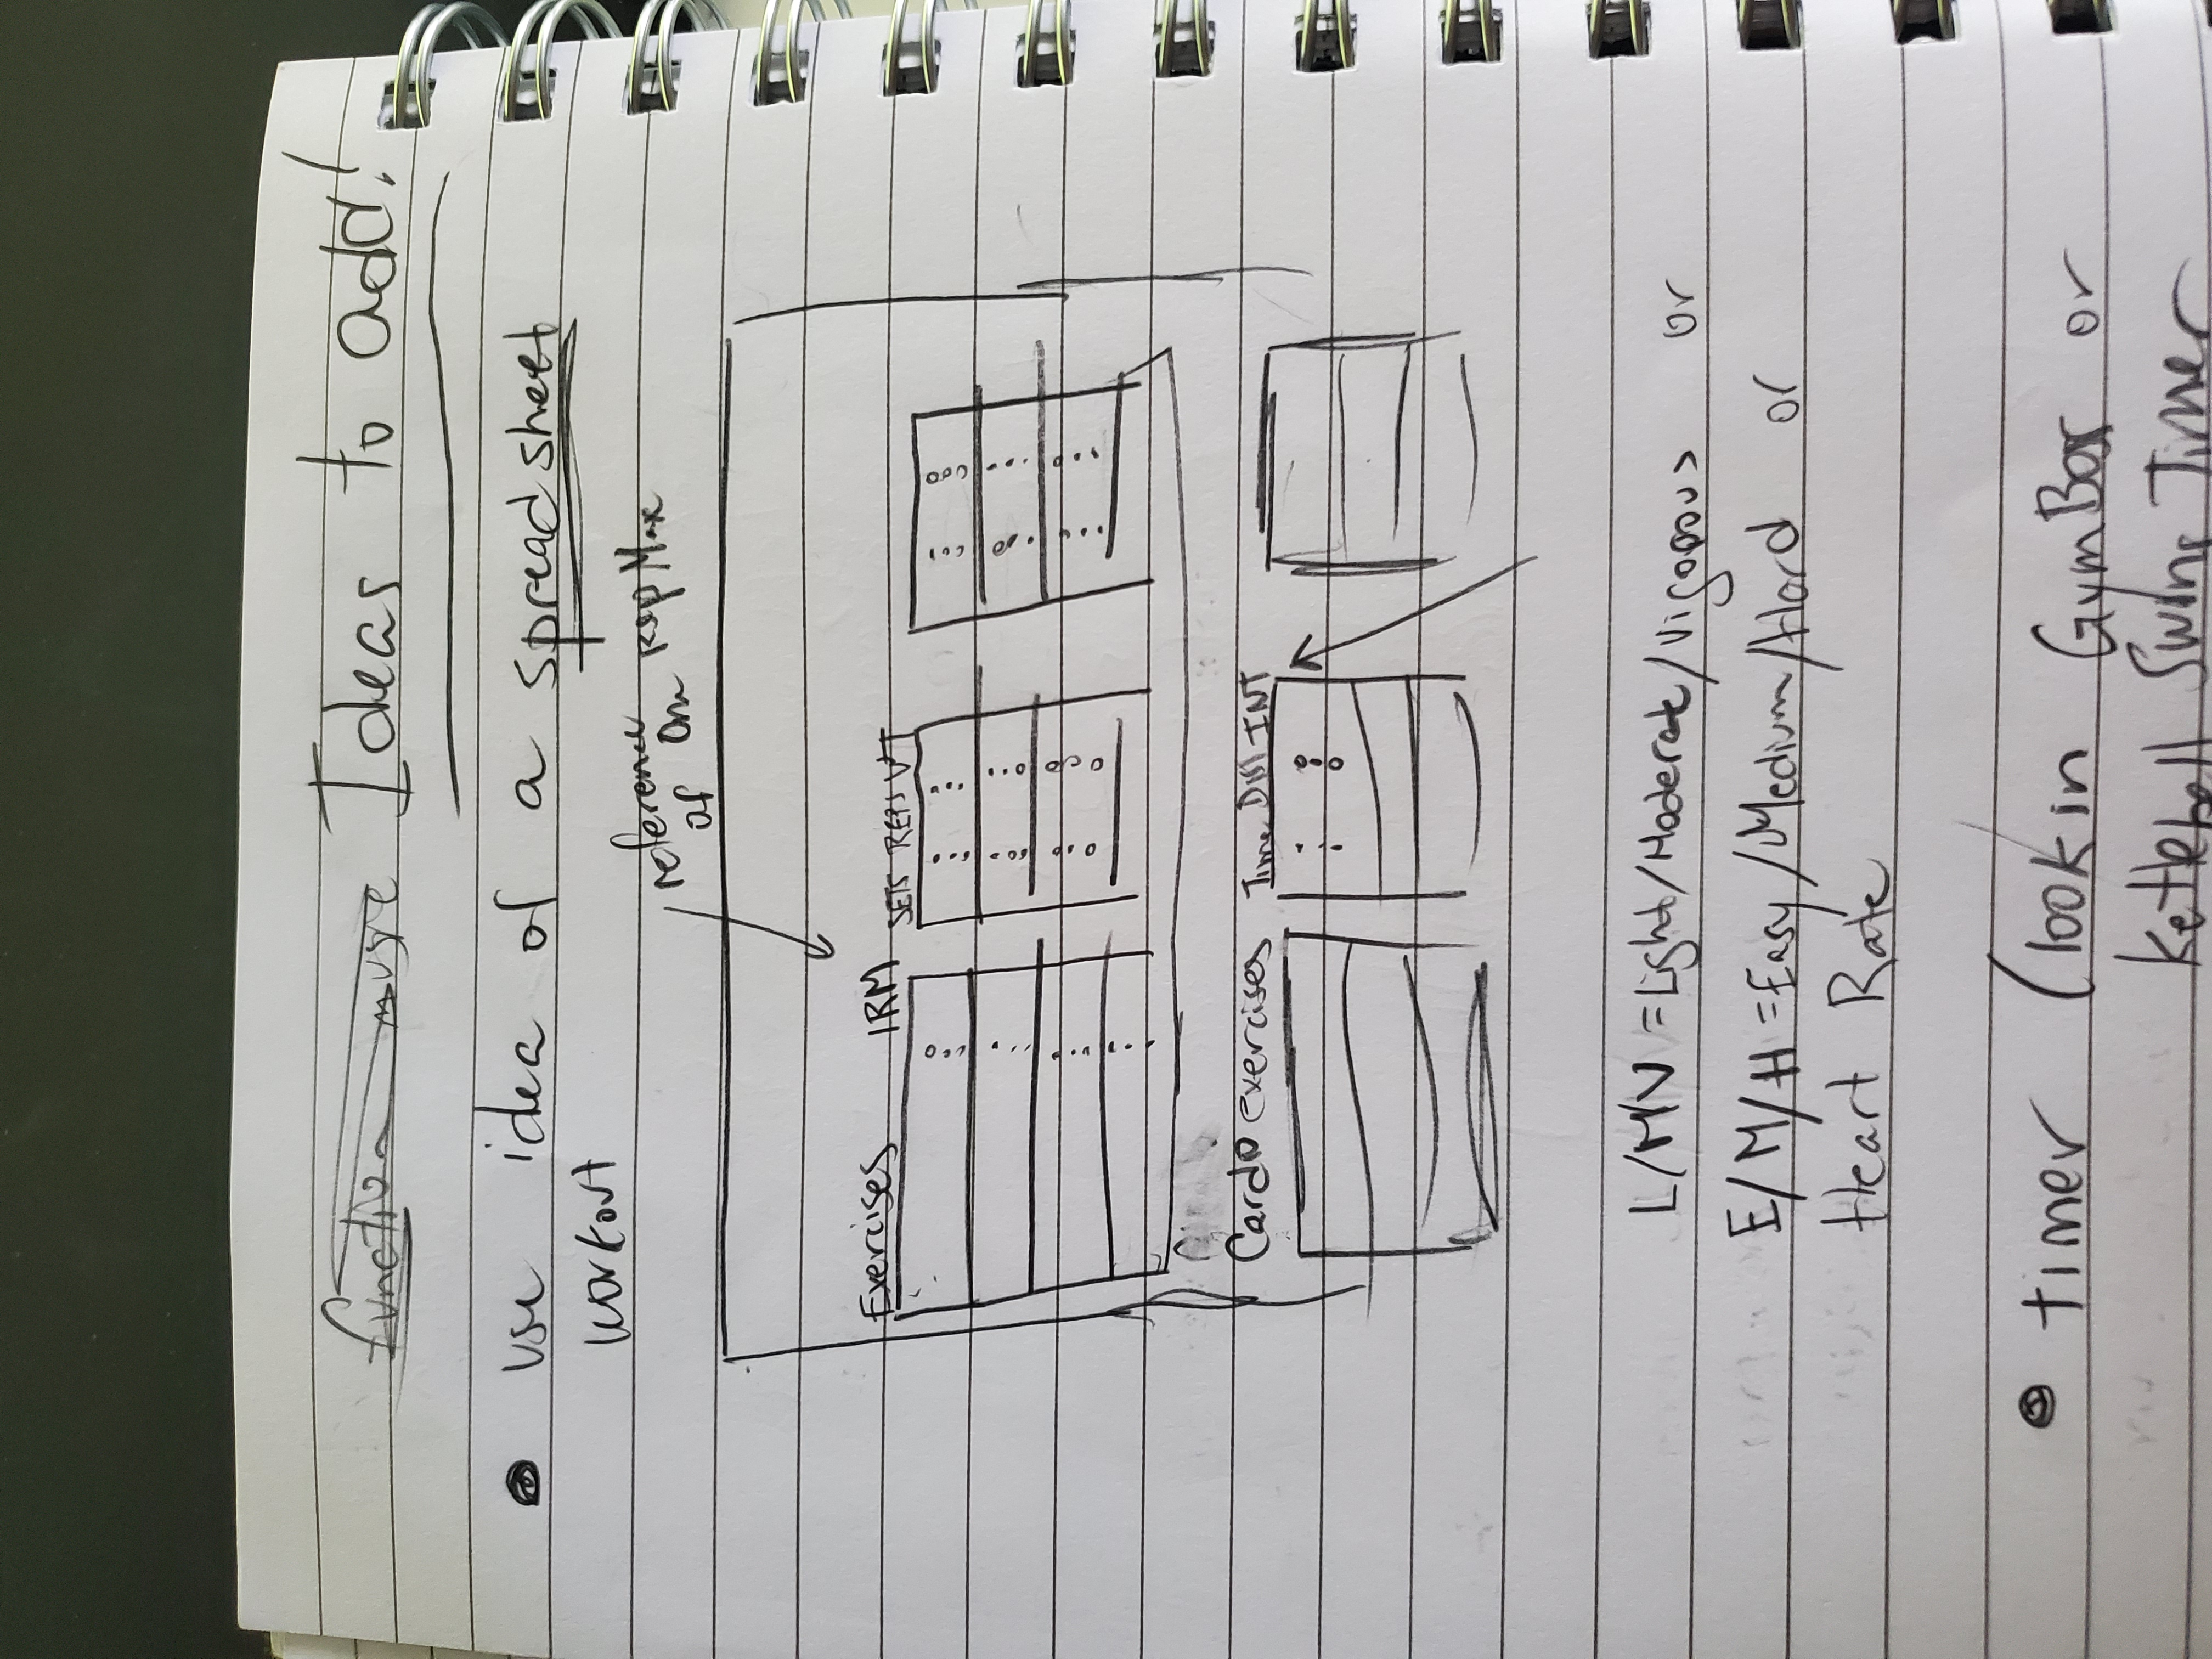 function Ideas to add!
use idea of a spreadsheet
workout
reference of One Rep Max
Exercises 1RM SETS REPS WT
Cardio exercises Time DIST INT
L/M/V = Light/Moderate/Vigorous or
E/M/H = Easy/Medium/Hard or
Heart Rate
timer (look in GymBox or
kettlebell Swing Timer